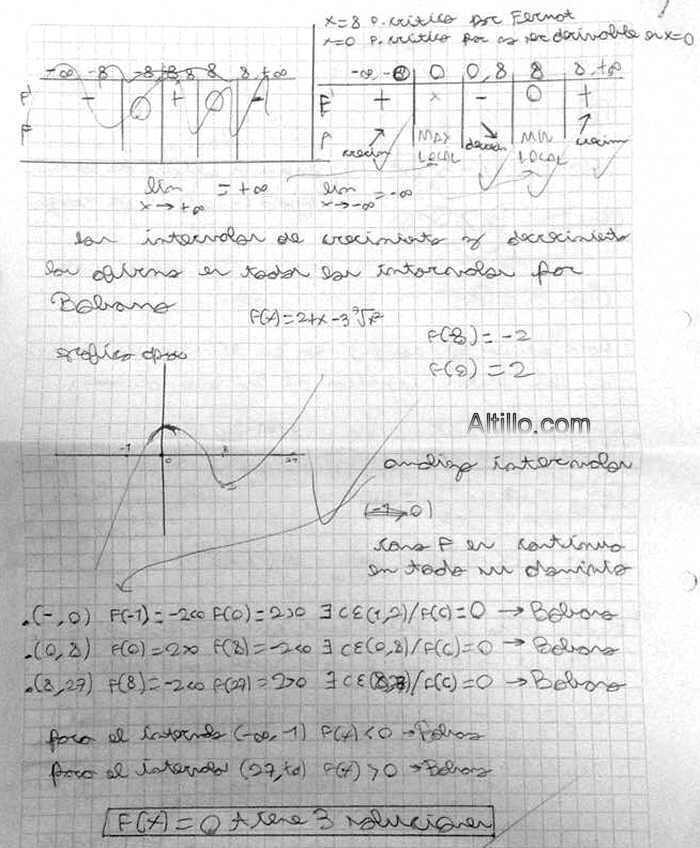 x=8 P. critico por Fermat
x=0 P. critico por no ser derivable en x=0
-∞,-8 -8 -8,8 8 8,+∞
F' + 0 + 0 -
F
-∞,0 0 0,8 8 8,+∞
F' + x - 0 +
F crecim MAX LOCAL decrecim MIN LOCAL crecim
lim x→+∞ = +∞ lim x→-∞ = -∞
los intervalos de crecimiento y decrecimiento
los en todos los intervalos por
Bolzano
F(x)=2+x-3∛x²
F(8)=-2
F(0)=2
grafico aprox
-1 0 8 27
Altillo.com
analizo intervalos
(-1,0)
como F es continua
en todo su dominio
.(-,0) F(-1)=-2<0 F(0)=2>0 ∃ C∈(1,2)/F(C)=0 → Bolzano
.(0,8) F(0)=2>0 F(8)=-2<0 ∃ C∈(0,8)/F(C)=0 → Bolzano
.(8,27) F(8)=-2<0 F(27)=2>0 ∃ C∈(8,27)/F(C)=0 → Bolzano
para el intervalo (-∞,-1) F(x)<0 → Bolzano
para el intervalo (27,+∞) F(x)>0 → Bolzano
F(x)=0 tiene 3 soluciones